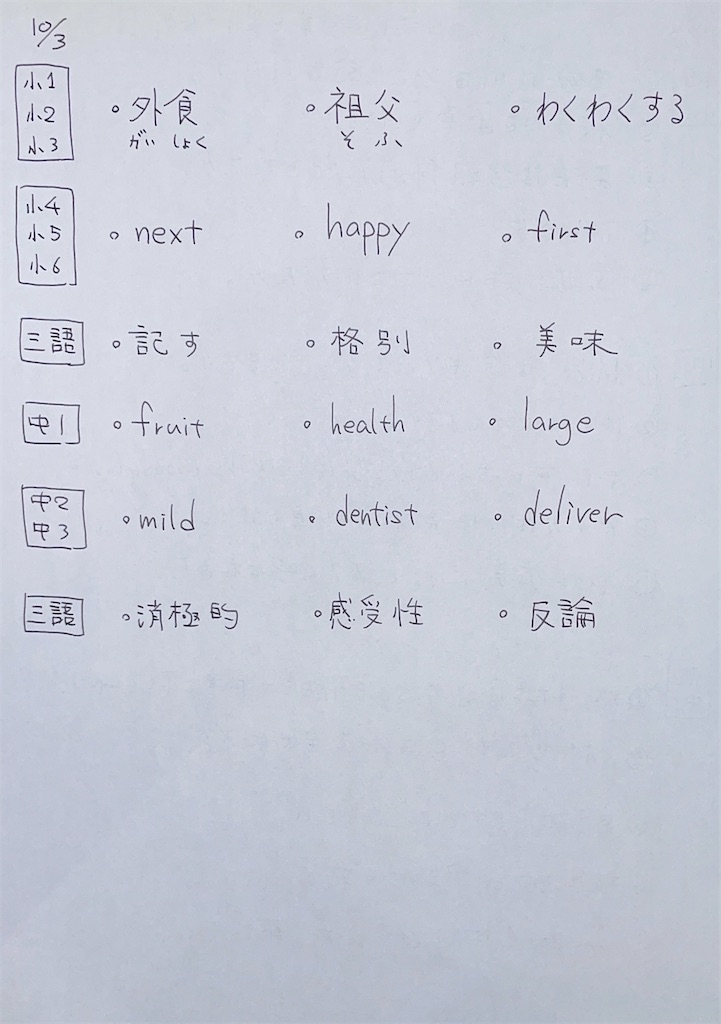 10/3
小1
小2 ○外食 ○祖父 ○わくわくする
小3 がいしょく そふ
小4
小5 ○next ○happy ○first
小6
三語 ○記す ○格別 ○美味
中1 ○fruit ○health ○large
中2 ○mild ○dentist ○deliver
中3
三語 ○消極的 ○感受性 ○反論